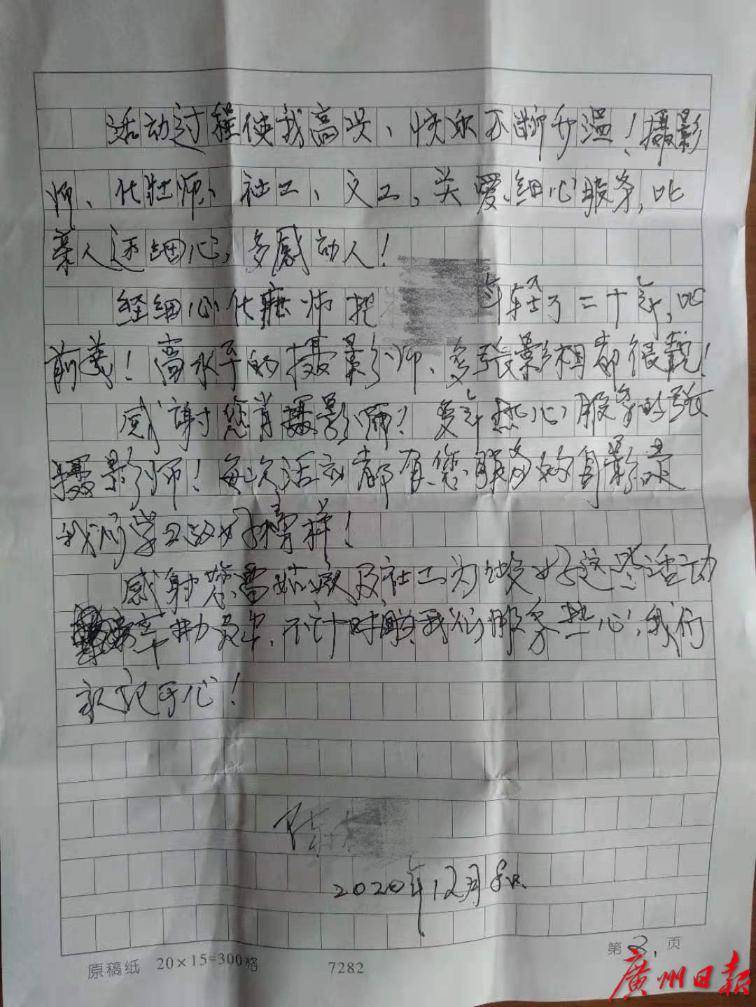 活动过程使我高兴、快乐不断升温！摄影
师、化壮师、社工、义工、关爱、细心服务，比
亲人还细心，多感动人！
经细心化妆师把 年轻了二十年，比
前美！高水平的摄影师、多张影相都很靓！
感謝您肖摄影师！多年热心服务的张
摄影师！每次活动都有您服务的身影是
我们学习的好榜样！
感射您雷姑娘及社工为搞好这些活动
辛勤 ，不计时 我们服务热心，我们
永记于心！
陈
2020年12月8日.
第3页
原稿纸 20×15=300格 7282
廣州日報